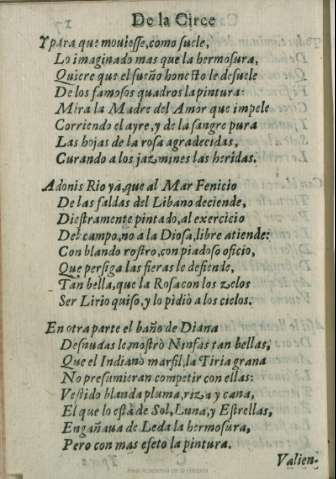 De la Circe
Y para que mouiesse, como suele,
Lo imaginado mas que la hermosura,
Quiere que el sueño honesto le desuele
De los famosos quadros la pintura:
Mira la Madre del Amor que impele
Corriendo el ayre, y de la sangre pura
Las hojas de la rosa agradecidas,
Curando a los jazmines las heridas.
Adonis Rio ya, que al Mar Fenicio
De las faldas del Libano deciende,
Diestramente pintado, al exercicio
Del campo, no a la Diosa, libre atiende:
Con blando rostro, con piadoso oficio,
Que persiga las fieras le defiende,
Tan bella, que la Rosa con los zelos
Ser Lirio quiso, y lo pidio a los cielos.
En otra parte el baño de Diana
Desnudas le mostrò Ninfas tan bellas,
Que el Indiano marfil, la Tiria grana
No presumieran competir con ellas:
Vestido blanda pluma, riza y cana,
El que lo està de Sol, Luna, y Estrellas,
Engañaua de Leda la hermosura,
Pero con mas efeto la pintura.
Valien-